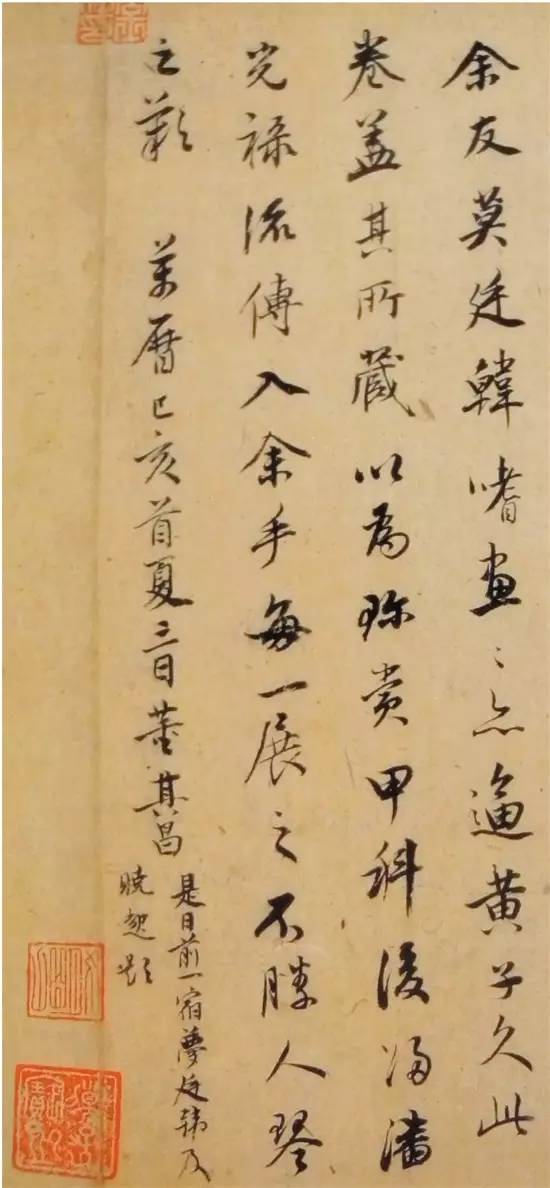 余友莫廷韓嗜畫〻亦逼黄子久此
卷盖其所藏以為珎賞甲科後歸潘
光祿流傳入余手每一展之不勝人琴
之歎 萬曆己亥首夏三日董其昌
是日前一宿夢廷韓及
曉起題